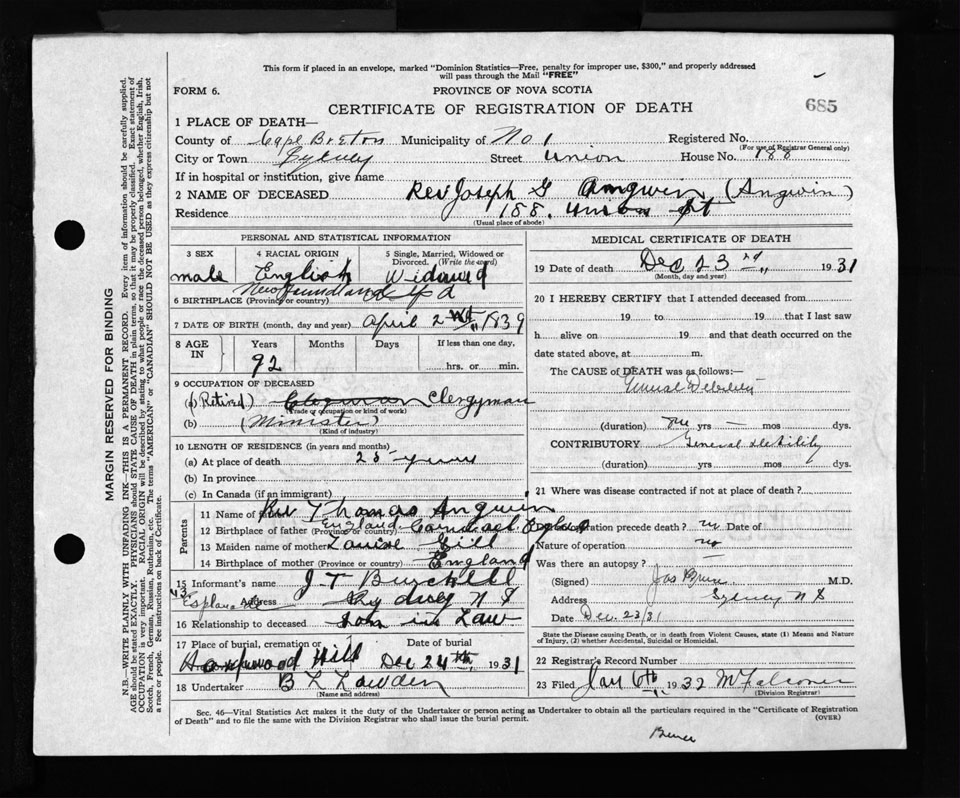 This form if placed in an envelope, marked "Dominion Statistics—Free, penalty for improper use, $300," and properly addressed
will pass through the Mail "FREE"
FORM 6.
PROVINCE OF NOVA SCOTIA
685
CERTIFICATE OF REGISTRATION OF DEATH
1 PLACE OF DEATH—
County of Cape Breton Municipality of No 1 Registered No.
(For use of Registrar General only)
City or Town Sydney Street Union House No. 188
If in hospital or institution, give name
2 NAME OF DECEASED Rev Joseph G Angwin (Angwin)
Residence 188. Union St
(Usual place of abode)
PERSONAL AND STATISTICAL INFORMATION
3 SEX 4 RACIAL ORIGIN 5 Single, Married, Widowed or Divorced. (Write the word)
male English Widowed
Newfoundland
6 BIRTHPLACE (Province or country)
7 DATE OF BIRTH (month, day and year) April 2 1839
8 AGE IN Years Months Days If less than one day,
92 hrs. or min.
9 OCCUPATION OF DECEASED
(a) (Retired) Clergyman
(Trade or occupation or kind of work)
(b) (Minister)
(Kind of industry)
10 LENGTH OF RESIDENCE (in years and months)
(a) At place of death 25 years
(b) In province
(c) In Canada (if an immigrant)
Parents
11 Name of father Rev Thomas Angwin
12 Birthplace of father (Province or country) England
13 Maiden name of mother Louise Gill
14 Birthplace of mother (Province or country) England
15 Informant's name J T Burchell
43 Esplanade Address Sydney N S
16 Relationship to deceased Son in Law
17 Place of burial, cremation or Date of burial
Hardwood Hill Dec 24th, 1931
18 Undertaker B L Lowden
(Name and address)
MEDICAL CERTIFICATE OF DEATH
19 Date of death Dec 23rd, 1931
(Month, day and year)
20 I HEREBY CERTIFY that I attended deceased from
19 to 19 that I last saw
h alive on 19 and that death occurred on the
date stated above, at m.
The CAUSE of DEATH was as follows:—
General Debility
(duration) yrs — mos dys.
CONTRIBUTORY General debility
(duration) yrs mos dys.
21 Where was disease contracted if not at place of death?
Did an operation precede death? no Date of
Nature of operation no
Was there an autopsy? —
(Signed) Jas Bruce M.D.
Address Sydney N S
Date Dec. 23/31
State the Disease causing Death, or in death from Violent Causes, state (1) Means and Nature of Injury, (2) whether Accidental, Suicidal or Homicidal.
22 Registrar's Record Number
23 Filed Jan 6th, 1932 M Falconer
(Division Registrar)
Sec. 46—Vital Statistics Act makes it the duty of the Undertaker or person acting as Undertaker to obtain all the particulars required in the "Certificate of Registration
of Death" and to file the same with the Division Registrar who shall issue the burial permit.
(OVER)
Bruce
MARGIN RESERVED FOR BINDING
N.B.—WRITE PLAINLY WITH UNFADING INK—THIS IS A PERMANENT RECORD. Every item of information should be carefully supplied.
AGE should be stated EXACTLY. PHYSICIANS should STATE CAUSE OF DEATH in plain terms, so that it may be properly classified. Exact statement of
OCCUPATION is very important. RACIAL ORIGIN will be described by stating to what people or race the deceased person belonged, whether English, Irish,
Scotch, French, German, Russian, Ruthenian, etc. The terms "AMERICAN" or "CANADIAN" SHOULD NOT BE USED as they express citizenship but not
a race or people. See instructions on back of Certificate.